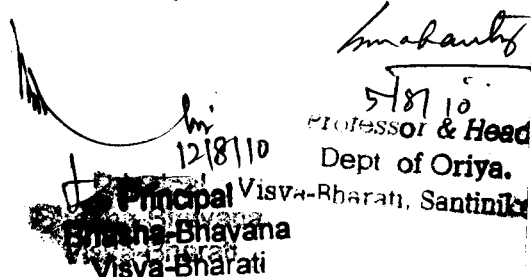 5/8/10
Professor & Head
Dept of Oriya.
Visva-Bharati, Santinik
12/8/10
Principal
Bhasha-Bhavana
Visva-Bharati